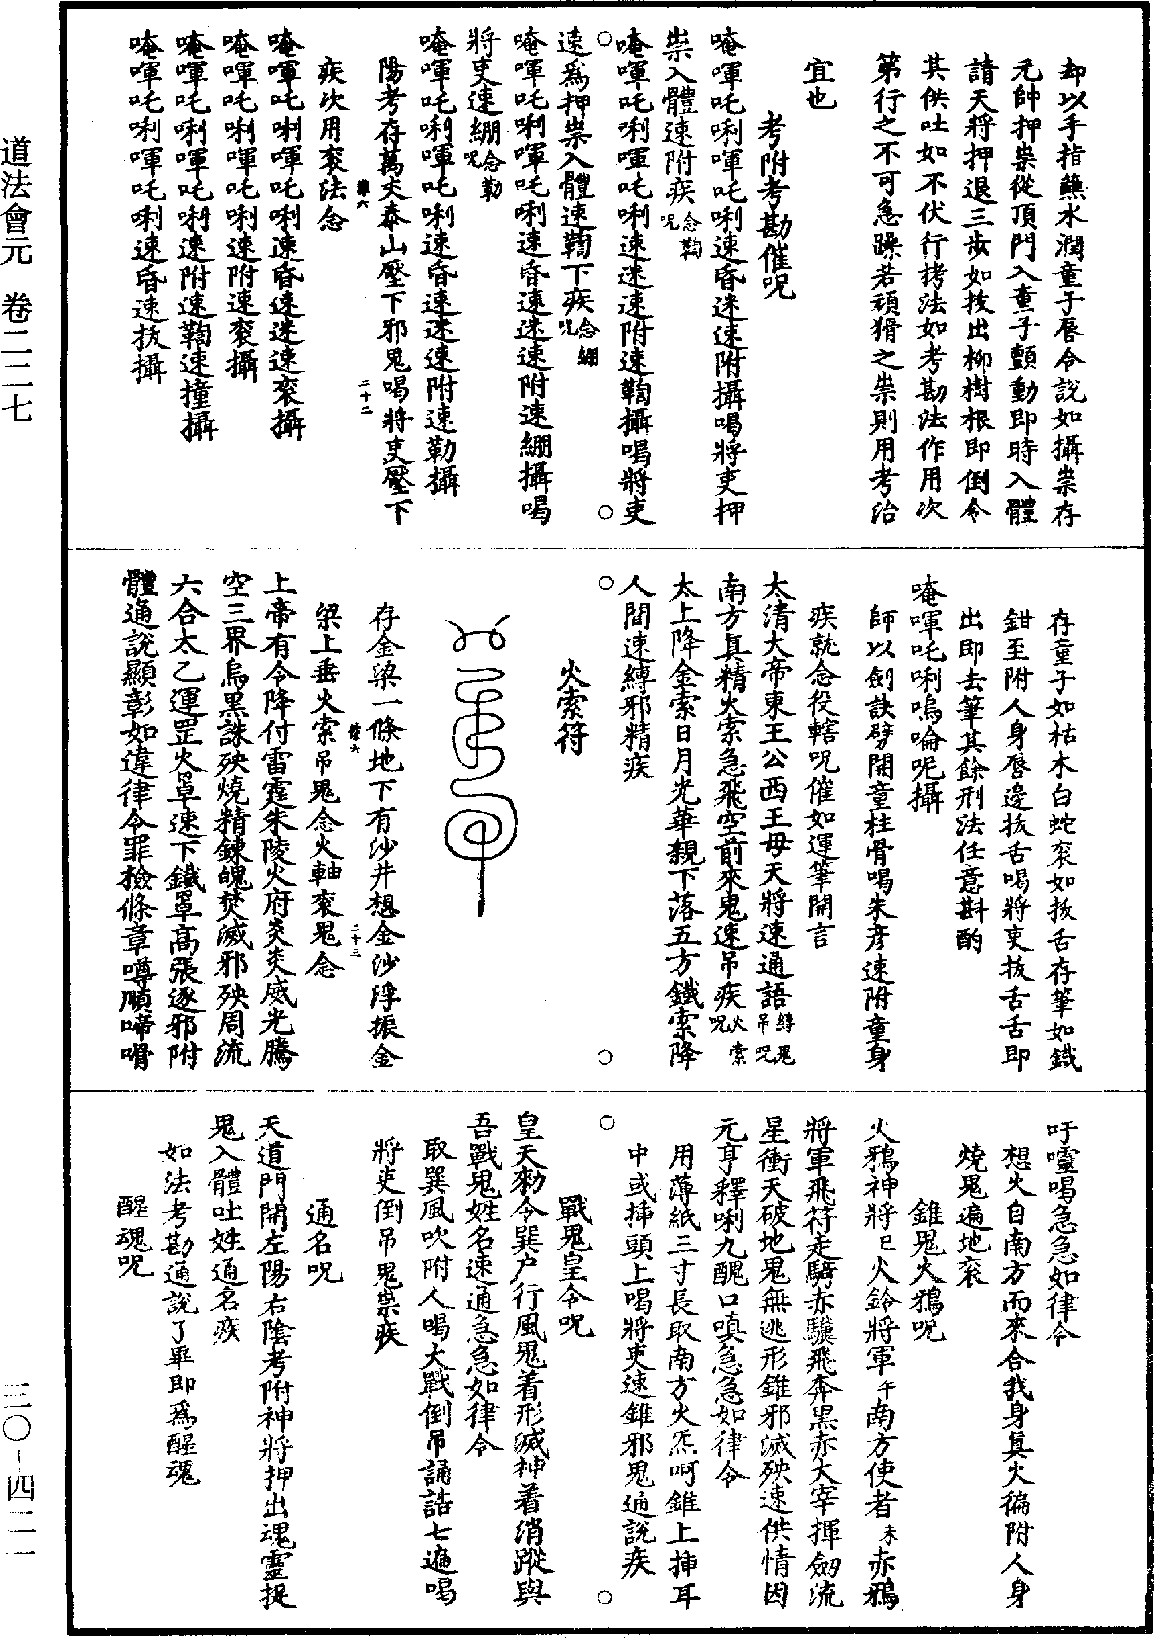 道法會元　卷二二七
三〇－四二一
却以手指蘸水潤童子唇令說如攝祟存
元帥押祟從頂門入童子顫動即時入體
請天將押退三步如拔出柳樹根即倒令
其供吐如不伏行拷法如考勘法作用次
第行之不可急躁若頑猾之祟則用考治
宜也
考附考勘催呪
唵㖇吒唎㖇吒唎速昏迷速附攝喝將吏押
祟入體速附疾念鞫呪
唵㖇吒唎㖇吒唎速迷速附速鞫攝喝將吏
速為押祟入體速鞫下疾念綳呪
唵㖇吒唎㖇吒唎速昏速迷速附速綳攝喝
將吏速綳念勒呪
唵㖇吒唎㖇吒唎速昏速迷速附速勒攝
陽考存萬丈泰山壓下邪鬼喝將吏壓下
疾次用衮法念
唵㖇吒唎㖇吒唎速昏速迷速衮攝
唵㖇吒唎㖇吒唎速附速衮攝
唵㖇吒唎㖇吒唎速附速鞫速撞攝
唵㖇吒唎㖇吒唎速昏速拔攝
二十二
存童子如枯木白蛇衮如拔舌存筆如鐵
鉗至附人身唇邊拔舌喝將吏拔舌舌即
出即去筆其餘刑法任意斟酌
唵㖇吒唎嗚㖮呢攝
師以劍訣劈開童柱骨喝朱彥速附童身
疾就念役轄呪催如運筆開言
太清大帝東王公西王母天將速通語縛鬼吊呪
南方真精火索急飛空前來鬼速吊疾火索呪
太上降金索日月光華親下落五方鐵索降
人間速縛邪精疾
火索符
存金梁一條地下有沙井想金沙浮振金
梁上垂火索吊鬼念火軸衮鬼念
上帝有令降付雷霆朱陵火府炎炎威光騰
空三界烏黑誅殃燒精鍊魄焚滅邪殃周流
六合太乙運罡火罩速下鐵罩高張逐邪附
體通說顯彰如違律令罪檢條章噂順啼㗕
二十三
吁𡅖喝急急如律令
想火自南方而來合我身真火徧附人身
燒鬼遍地衮
錐鬼火鴉呪
火鴉神將巳火鈴將軍午南方使者未赤鴉
將軍飛符走騎赤驥飛奔黑赤大宰揮劍流
星衝天破地鬼無逃形錐邪滅殃速供情因
元亨釋唎九醜口嗔急急如律令
用薄紙三寸長取南方火炁呵錐上揷耳
中或揷頭上喝將吏速錐邪鬼通說疾
戰鬼皇令呪
皇天勑令巽户行風鬼着形滅神着消蹤與
吾戰鬼姓名速通急急如律令
取巽風吹附人喝大戰倒吊誦誥七遍喝
將吏倒吊鬼祟疾
通名呪
天道門開左陽右陰考附神將押出魂靈捉
鬼入體吐姓通名疾
如法考勘通說了畢即為醒魂
醒魂呪